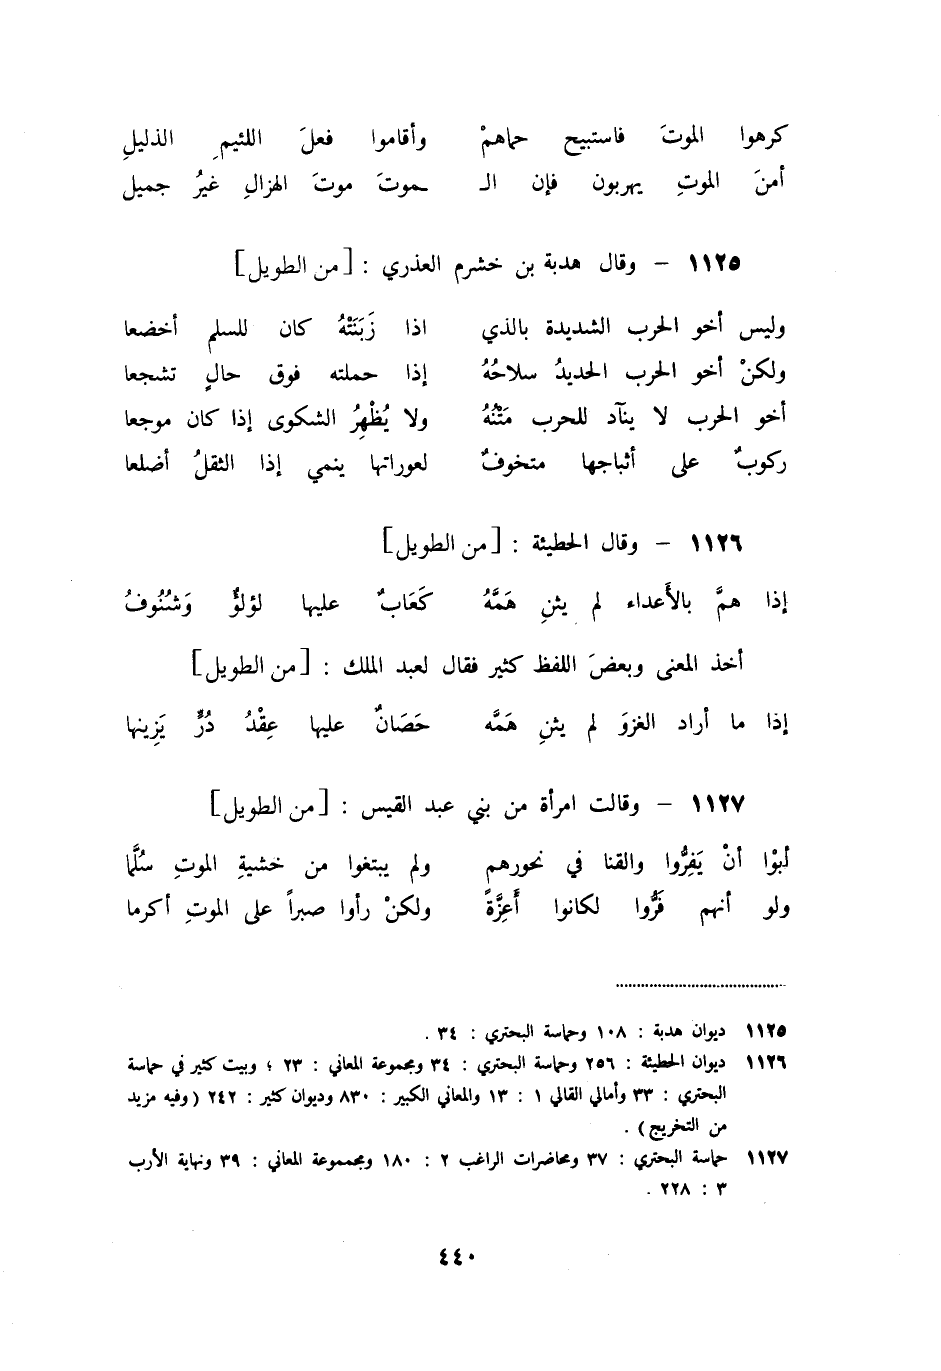 كرهوا الموتَ فاستبيح حماهمْ وأقاموا فعلَ اللئيمِ الذليلِ
أمنَ الموتِ يهربون فإن الـ ـموتَ موتَ الهزالِ غيرُ جميل
١١٢٥ – وقال هدبة بن خشرم العذري : [من الطويل]
وليس أخو الحرب الشديدة بالذي اذا زَبَنَتْهُ كان للسلم أخضعا
ولكنْ أخو الحرب الحديدُ سلاحُهُ إذا حملته فوق حالٍ تشجعا
أخو الحرب لا ينآد للحرب مَتْنُهُ ولا يُظْهِرُ الشكوى إذا كان موجعا
ركوبٌ على أثباجها متخوفٌ لعوراتها ينمي إذا الثقلُ أضلعا
١١٢٦ – وقال الحطيئة : [من الطويل]
إذا همَّ بالأَعداء لم يثنِ هَمَّهُ كَعَابٌ عليها لؤلؤٌ وَشُنُوفُ
أخذ المعنى وبعضَ اللفظ كثير فقال لعبد الملك : [من الطويل]
إذا ما أراد الغزوَ لم يثنِ هَمَّه حَصَانٌ عليها عِقْدُ دُرٍّ يَزِينها
١١٢٧ – وقالت امرأة من بني عبد القيس : [من الطويل]
أبوْا أنْ يَفِرُّوا والقنا في نحورهم ولم يبتغوا من خشيةِ الموتِ سُلَّما
ولو أنهم فَرُّوا لكانوا أَعِزَّةً ولكنْ رأوا صبراً على الموتِ أكرما
١١٢٥ ديوان هدبة : ١٠٨ وحماسة البحتري : ٣٤ .
١١٢٦ ديوان الحطيئة : ٢٥٦ وحماسة البحتري : ٣٤ ومجموعة المعاني : ٢٣ ؛ وبيت كثير في حماسة
البحتري : ٣٣ وأمالي القالي ١ : ١٣ والمعاني الكبير : ٨٣٠ وديوان كثير : ٢٤٢ (وفيه مزيد
من التخريج) .
١١٢٧ حماسة البحتري : ٣٧ ومحاضرات الراغب ٢ : ١٨٠ ومجموعة المعاني : ٣٩ ونهاية الأرب
٣ : ٢٢٨ .
٤٤٠